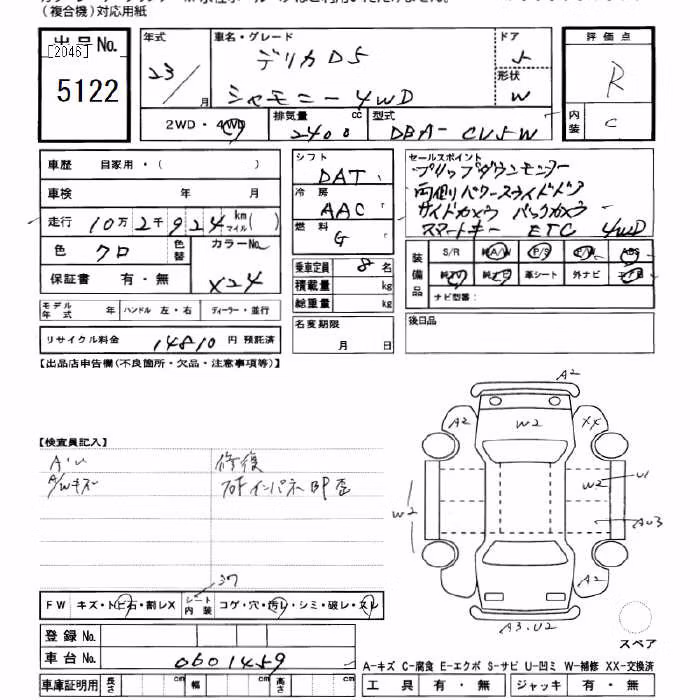 (複合機)対応用紙
出品No.
[2046]
5122
年式
23/
月
車名・グレード
デリカD5
シャモニー 4WD
ドア
5
形状
W
評価点
R
内装
C
2WD・4WD
排気量
cc
2400
型式
DBA-CV5W
車歴 自家用・( )
車検 年 月
走行 10万2千924 km マイル ( )
色 クロ 色替 カラーNo.
X24
保証書 有・無
モデル年式 年 ハンドル 左・右 ディーラー・並行
リサイクル料金 14810 円 預託済
シフト
DAT
冷房
AAC
燃料
G
乗車定員 8 名
積載量 kg
総重量 kg
名変期限
月 日
セールスポイント
フリップダウンモニター
両側パワースライドドア
サイドカメラ バックカメラ
スマートキー ETC 4WD
装備品
S/R 純A/W P/S P/W ABS
純TV 純ナビ 革シート 外ナビ エアB
ナビ型番:
後日品
【出品店申告欄(不良箇所・欠品・注意事項等)】
【検査員記入】
A・U 修復
A/Wキズ
FW キズ・トビ石・割レX シート内装 コゲ・穴・汚レ・シミ・破レ・スレ
登録No.
車台No. 0601459
車庫証明用 長さ cm 幅 cm 高さ cm
A2
A2
W2
XX
W2
W2
U1
AU3
A2
A3.U2
スペア
A-キズ C-腐食 E-エクボ S-サビ U-凹ミ W-補修 XX-交換済
工具 有・無 ジャッキ 有・無